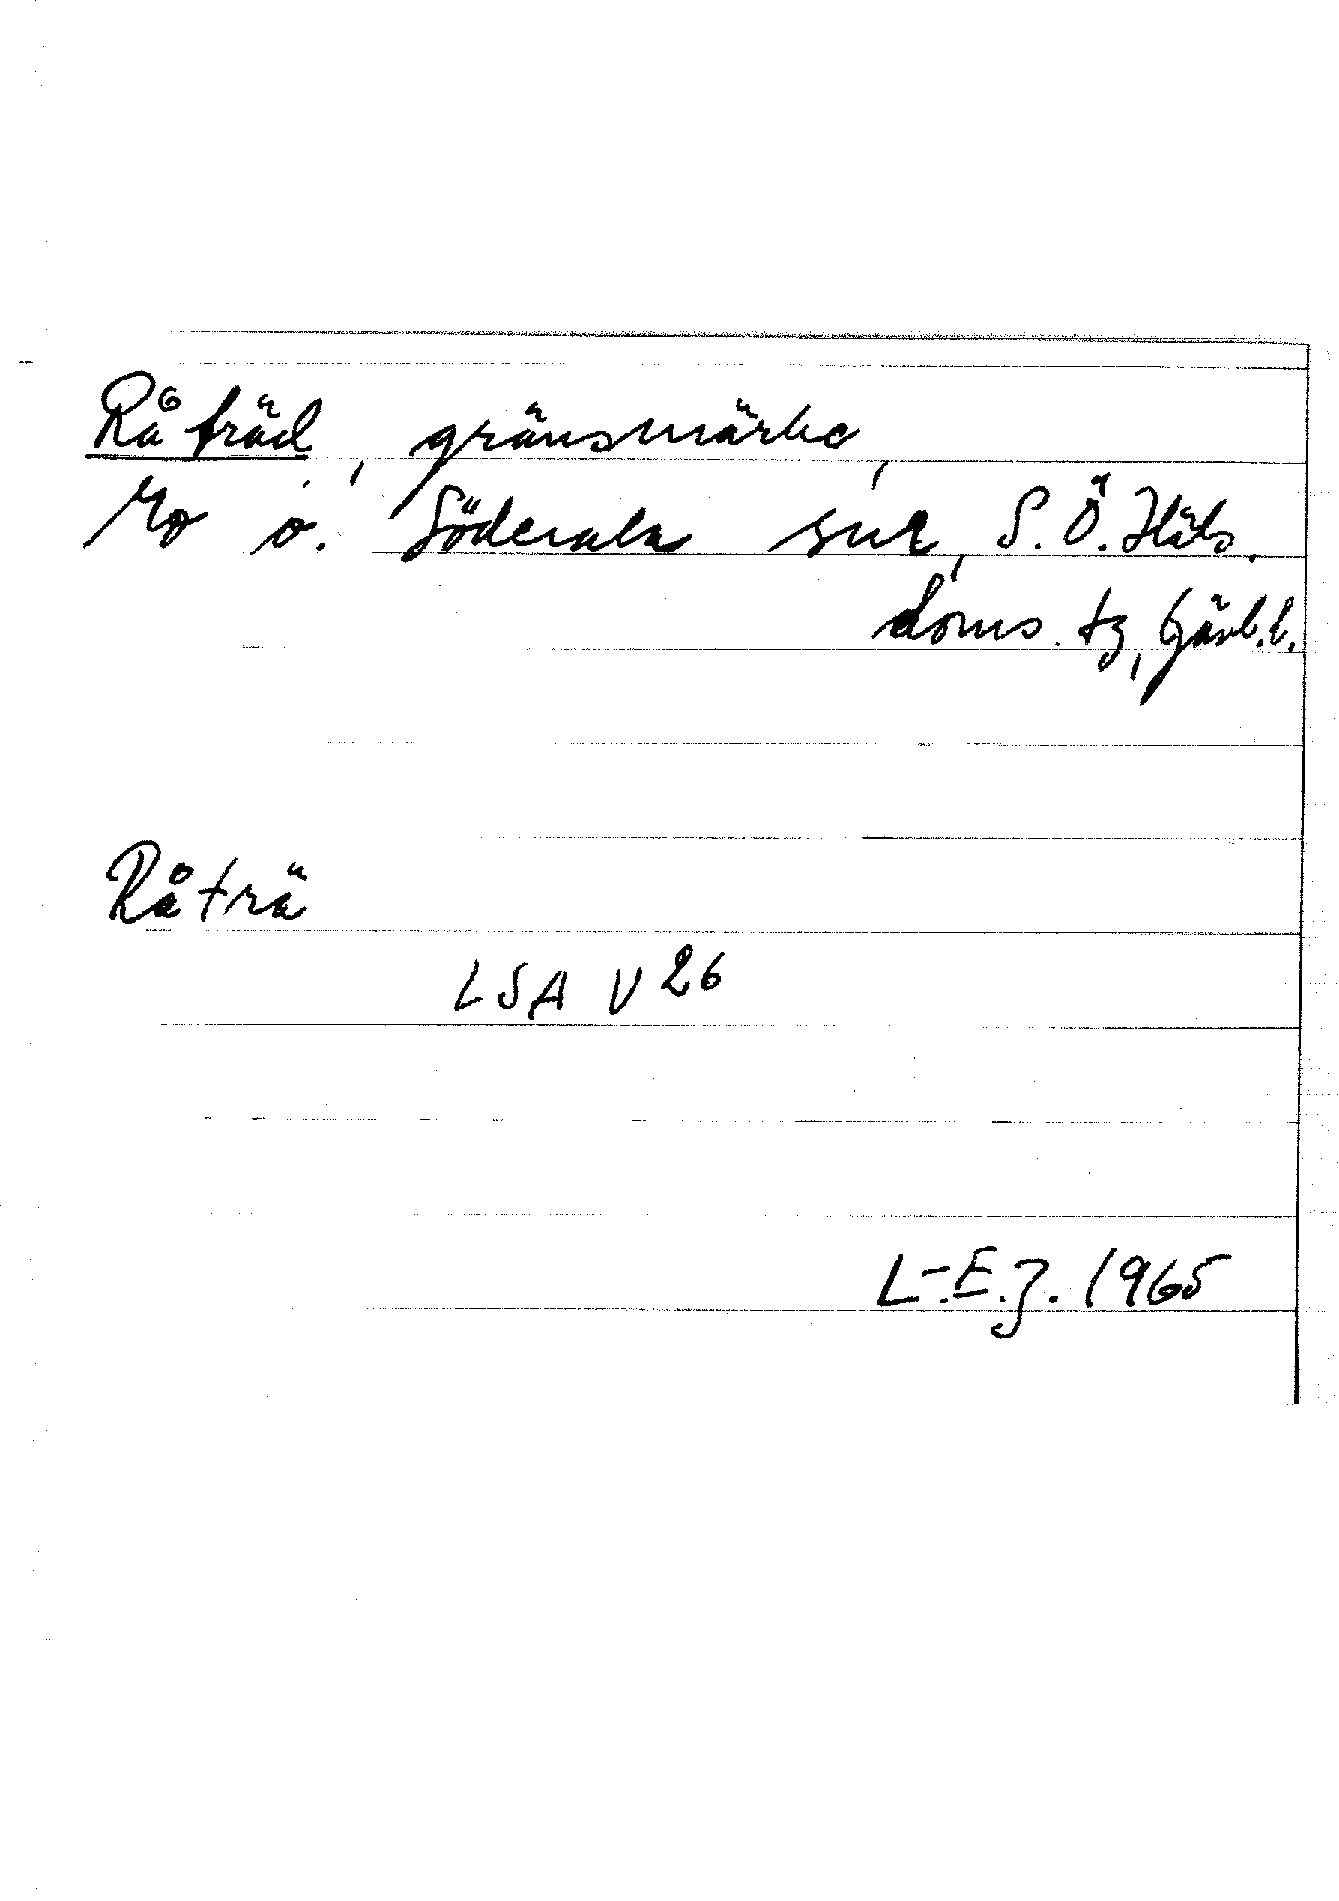 Råträd, gränsmärke,
Mo o. Söderala snr, S. Ö. Häls.
doms. tg, Gävl. l.
Råträ
LSA V 26
L-E.J. 1965